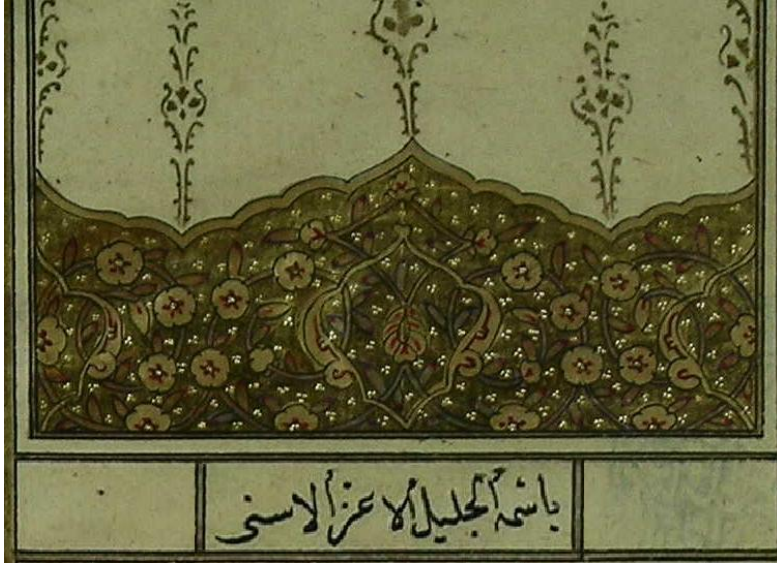 باسمه الجليل الاعز الاسنى